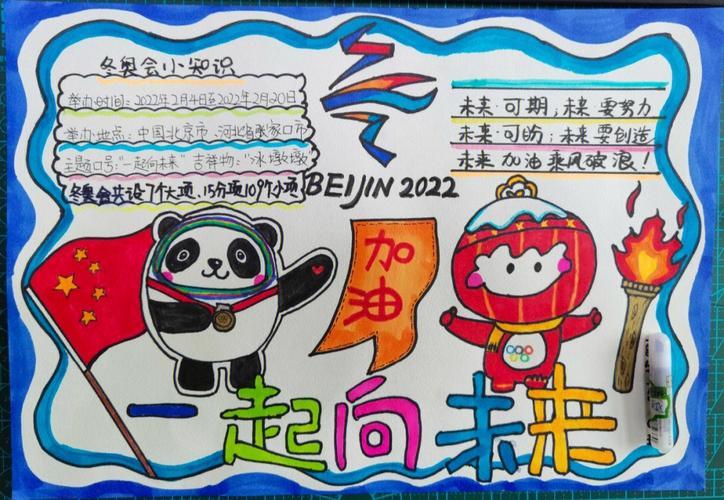 冬奥会小知识
举办时间：2022年2月4日至2022年2月20日
举办地点：中国北京市、河北省张家口市
主题口号："一起向未来" 吉祥物："冰墩墩"
冬奥会共设7个大项、15分项109个小项
BEIJIN 2022
未来·可期，未来要努力
未来·可盼；未来要创造
未来加油乘风破浪！
加油
一起向未来